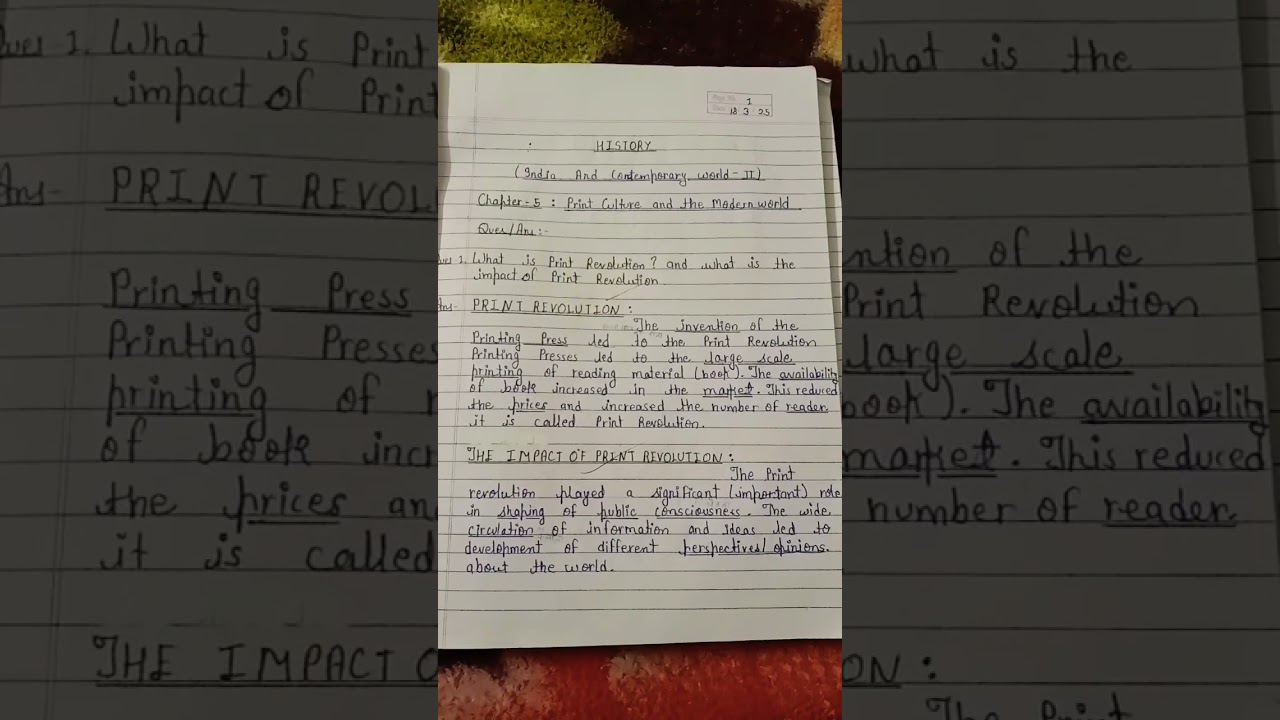 Page No. 1
Date 18 3 25
HISTORY
(India And Contemporary world-II)
Chapter-5 : Print Culture and the Modern world
Ques/Ans:-
Ques 1. What is Print Revolution? and what is the
impact of Print Revolution.
Ans- PRINT REVOLUTION :
The invention of the
Printing Press led to the Print Revolution
Printing Presses led to the large scale
printing of reading material (book). The availability
of book increased in the market. This reduced
the prices and increased the number of reader
it is called Print Revolution.
THE IMPACT OF PRINT REVOLUTION :
The Print
revolution played a significant (important) role
in shaping of public consciousness. The wide
circulation of information and ideas led to
development of different perspectives/opinions.
about the world.